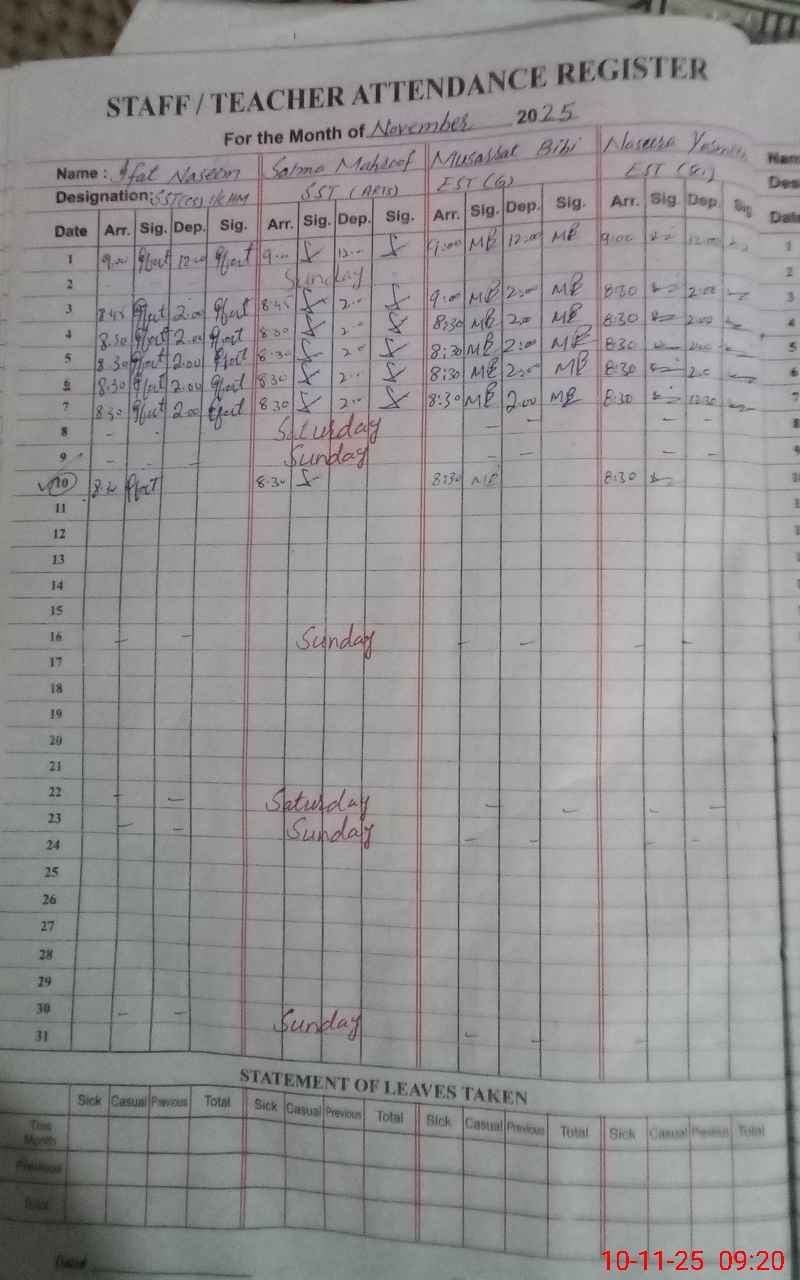 STAFF / TEACHER ATTENDANCE REGISTER
For the Month of November 2025
Name : Ifat Naseem Salma Mahroof Musarrat Bibi Naseera Yasmin
Designation: SST (ARTS) EST (G) EST
Date Arr. Sig. Dep. Sig. Arr. Sig. Dep. Sig. Arr. Sig. Dep. Sig. Arr. Sig. Dep. Sig
1 9.00 Ifart 12.00 Ifart 9.00 12.00 9:00 MB 12:00 MB 9:00 12:00
2 Sunday
3 8.45 Ifart 2.00 Ifart 8.45 2.00 9:00 MB 2:00 MB 8:30 2:00
4 8.30 Ifart 2.00 Ifart 8.30 2.00 8:30 MB 2:00 MB 8:30 2:00
5 8.30 Ifart 2.00 Ifart 8.30 2.00 8:30 MB 2:00 MB 8:30 2:00
6 8.30 Ifart 2.00 Ifart 8.30 2.00 8:30 MB 2:00 MB 8:30 2:00
7 8.30 Ifart 2.00 Ifart 8.30 2.00 8:30 MB 2.00 MB 8:30 12:30
8 - - Saturday - - - -
9 - - Sunday - - - -
10 8.30 Ifart 8.30 8:30 MB 8:30
11
12
13
14
15
16 - - Sunday - - - -
17
18
19
20
21
22 - - Saturday - - - -
23 - - Sunday - - - -
24
25
26
27
28
29
30 - - Sunday - -
31
STATEMENT OF LEAVES TAKEN
Sick Casual Previous Total Sick Casual Previous Total Sick Casual Previous Total Sick Casual Previous Total
This Month
Previous
Total
Dated
10-11-25 09:20